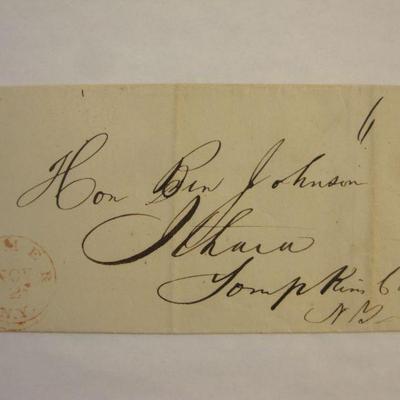 Hon Ben Johnson
Ithaca
Tompkins Co
N Y
MER
NOV
2
N.Y.